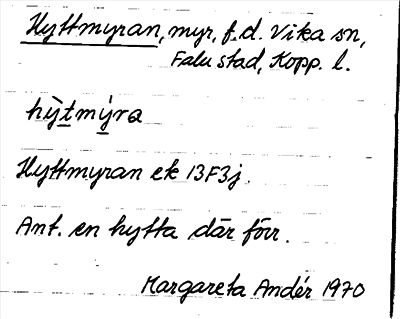 Hyttmyran, myr, f.d. Vika sn,
Falu stad, Kopp. l.
hỳtmỳra
Hyttmyran ek 13F3j.
Ant. en hytta där förr.
Margareta Andér 1970